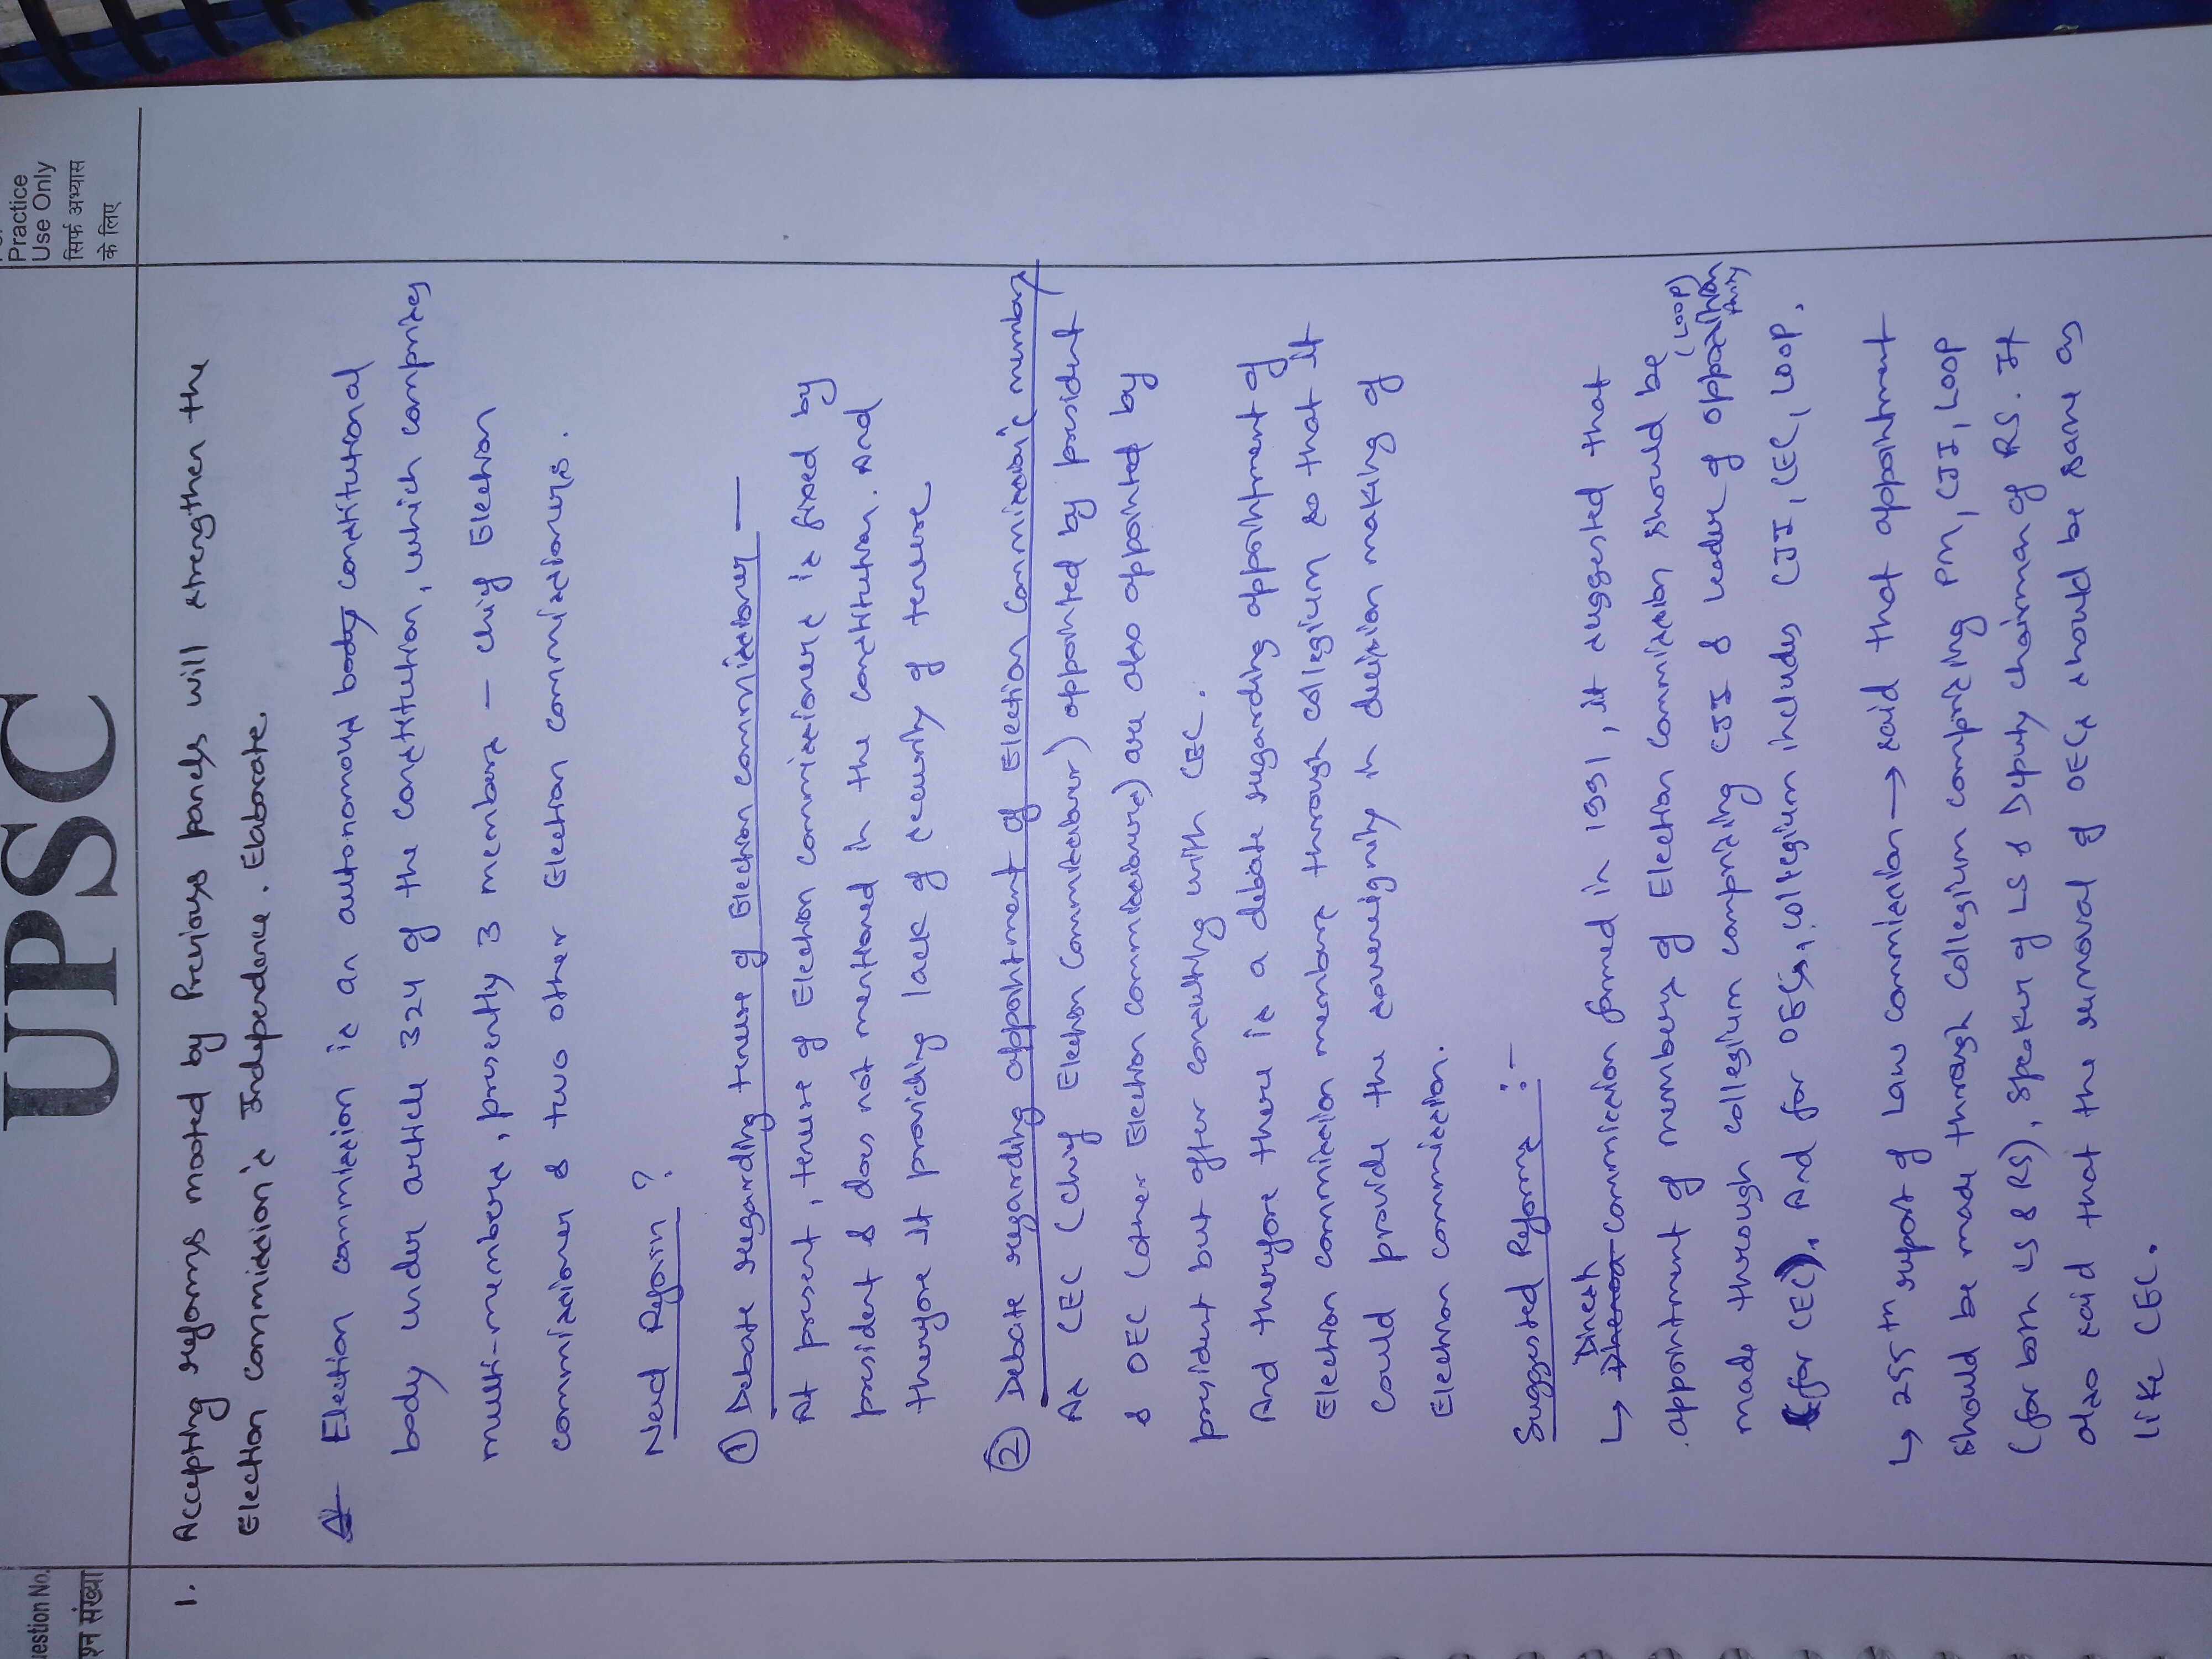 UPSC
Practice
Use Only
सिर्फ अभ्यास
के लिए
uestion No.
श्न संख्या
1. Accepting reforms mooted by Previous panels will strengthen the
Election commission's Independence. Elaborate.
Election commission is an autonomous body constitutional
body under article 324 of the constitution, which comprises
multi-members, presently 3 members - chief Election
commissioner & two other Election commissioners.
Need Reform ?
① Debate regarding tenure of Election commissioner —
At present, tenure of Election commissioners is fixed by
president & does not mentioned in the constitution. And
therefore it providing lack of security of tenure
② Debate regarding appointment of Election commission's members
As CEC (Chief Election Commissioner) appointed by president
& OEC (other Election commissioners) are also appointed by
president but after consulting with CEC.
And therefore there is a debate regarding appointment of
Election commission members through collegium so that it
could provide the sovereignity in decision making of
Election commission.
Suggested Reforms :-
↳ Dinesh commission formed in 1991, it suggested that
appointment of members of Election commission should be
made through collegium comprising CJI & leader of opposition party (LOOP)
(for CEC). And for OECs, collegium includes CJI, CEC, LOOP.
↳ 255th report of Law commission → said that appointment
should be made through collegium comprising PM, CJI, LOOP
(for both LS & RS), speaker of LS & Deputy chairman of RS. It
also said that the removal of OECs should be same as
like CEC.